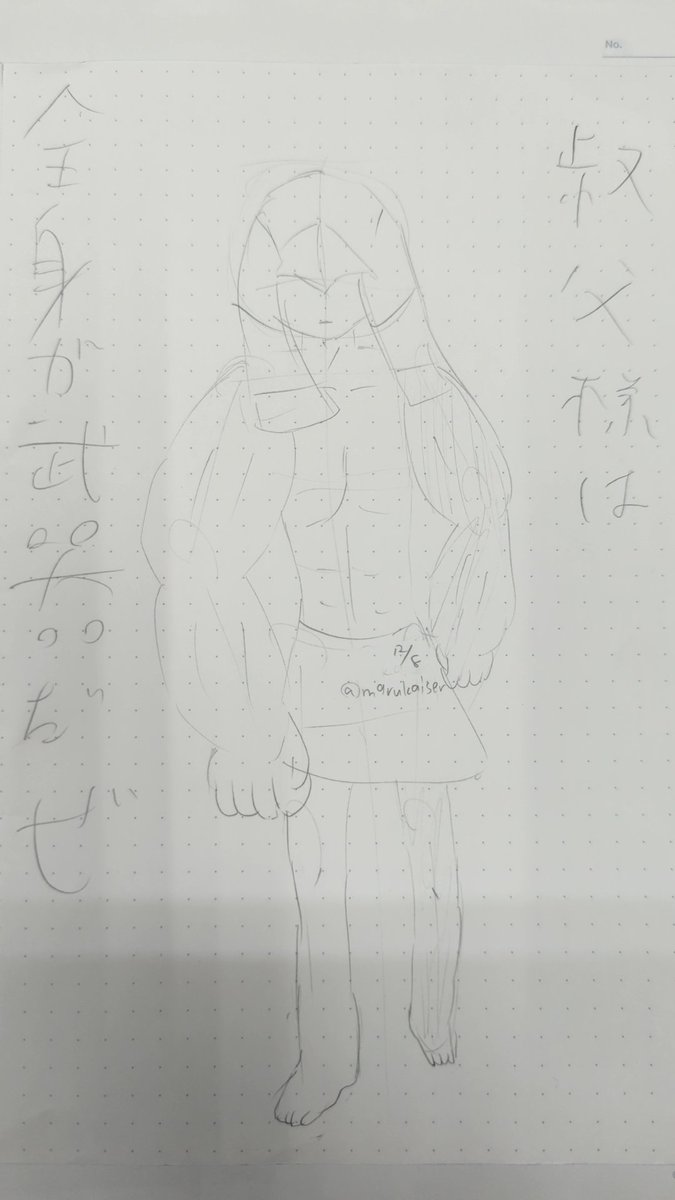 叔父様は
全身が武器だぜ
12/8
@marukaiser
No.